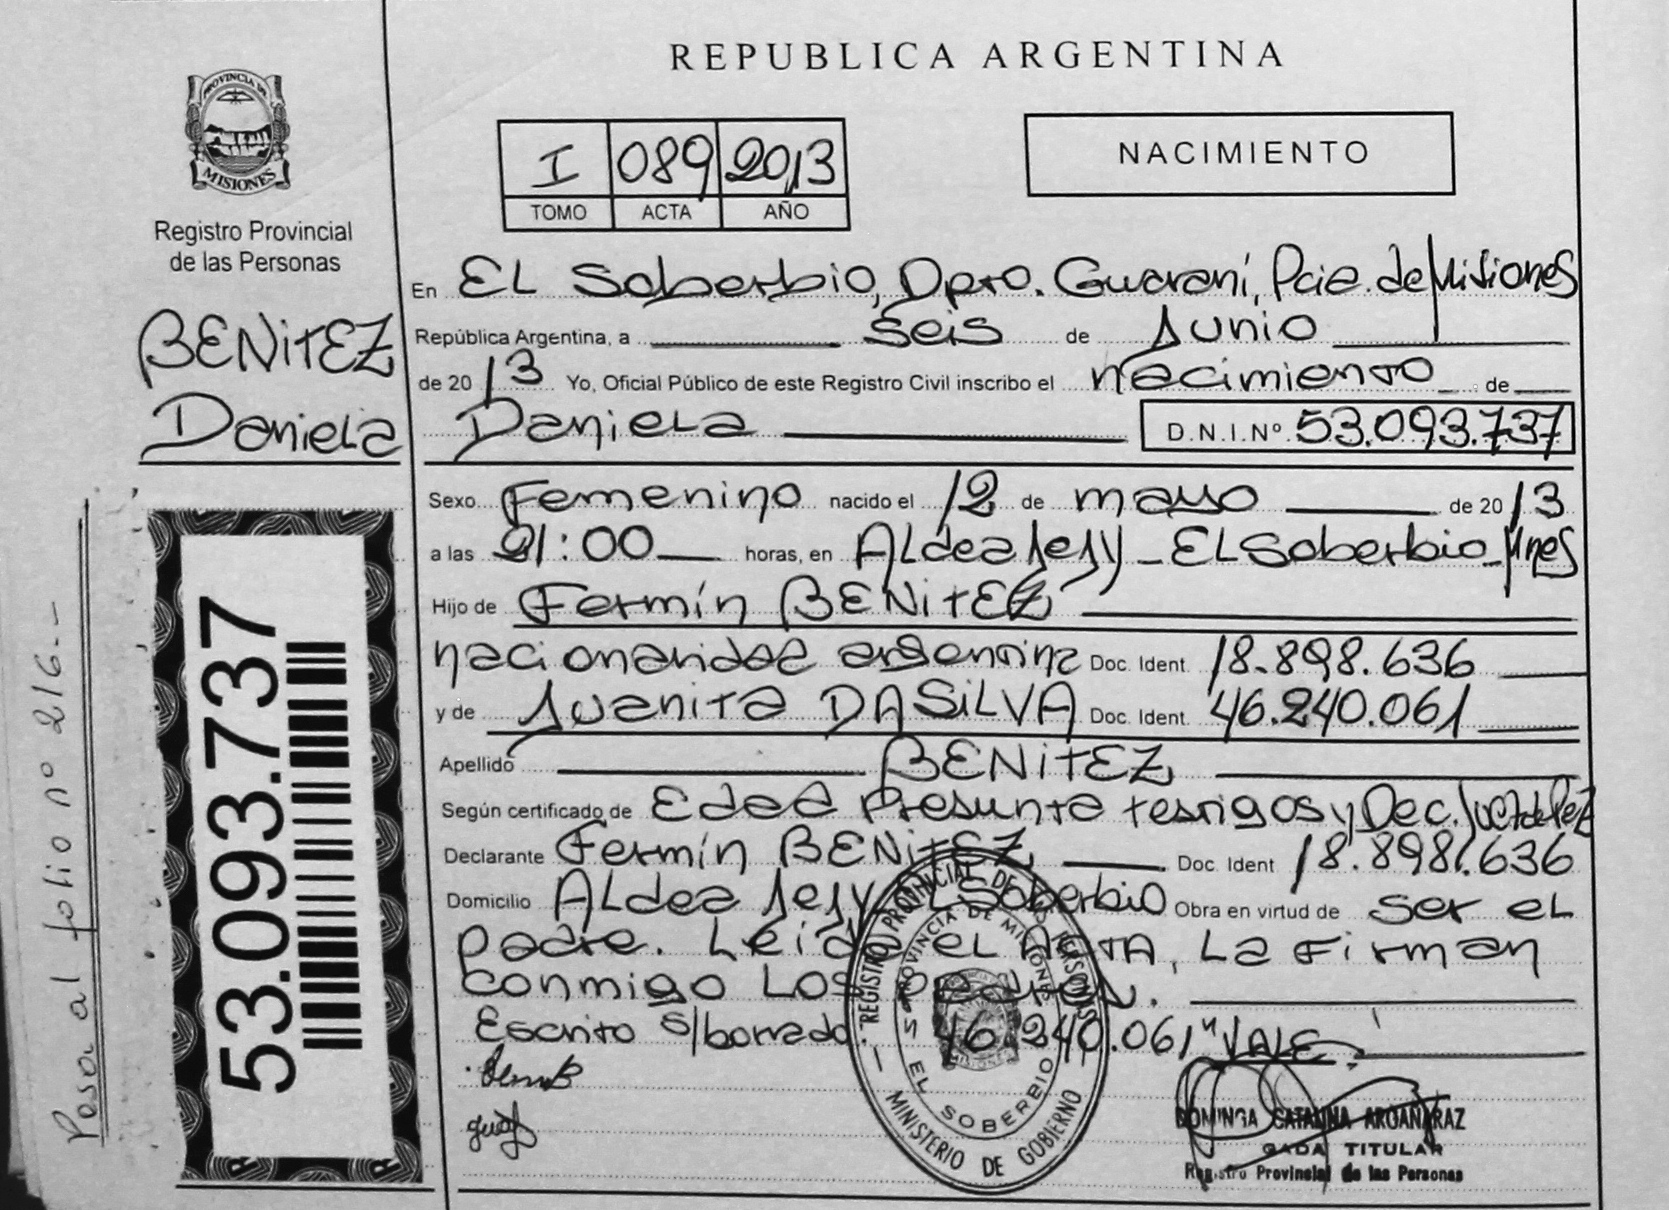 REPUBLICA ARGENTINA
PROVINCIA DE
MISIONES
Registro Provincial
de las Personas
I 089 2013
TOMO ACTA AÑO
NACIMIENTO
BENITEZ
Daniela
Pasa al folio nº 216.-
53.093.737
En EL Soberbio, Dpto. Guaraní, Pcia. de Misiones
República Argentina, a seis de Junio
de 2013 Yo, Oficial Público de este Registro Civil inscribo el nacimiento de
Daniela D.N.I.Nº 53.093.737
Sexo Femenino nacido el 12 de mayo de 2013
a las 21:00 horas, en ALdea Jejy - EL Soberbio - Mnes
Hijo de Fermín BENITEZ
nacionalidad argentina Doc. Ident. 18.898.636
y de Juanita DA SILVA Doc. Ident. 46.240.061
Apellido BENITEZ
Según certificado de Edad Presunta testigos y Dec. Juez de Paz
Declarante Fermín BENITEZ Doc. Ident 18.898.636
Domicilio ALdea Jejy EL Soberbio Obra en virtud de ser el
padre. Leida el ACTA, La Firman
conmigo Los padres.
Escrito s/borrado: 46.240.061" VALE
REGISTRO PROVINCIAL DE LAS PERSONAS
PROVINCIA DE MISIONES
EL SOBERBIO
MINISTERIO DE GOBIERNO
DOMINGA CATALINA AROAÑARAZ
GADA TITULAR
Registro Provincial de las Personas